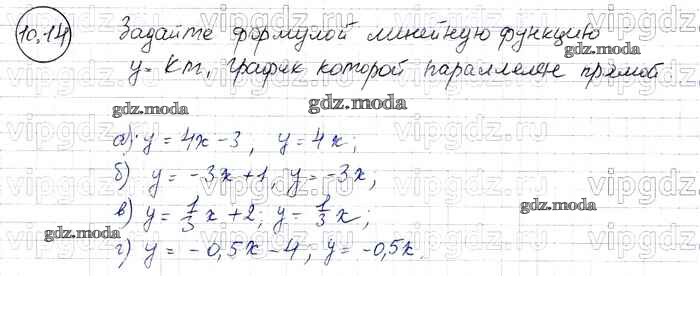 10.14 Задайте формулой линейную функцию
y = Km, график которой параллелен прямой
а) y = 4x - 3, y = 4x;
б) y = -3x + 1, y = -3x;
в) y = 1/3 x + 2; y = 1/3 x;
г) y = -0,5x - 4; y = -0,5x.
gdz.moda
gdz.moda
gdz.moda
gdz.moda
gdz.moda
gdz.moda
vipgdz.ru